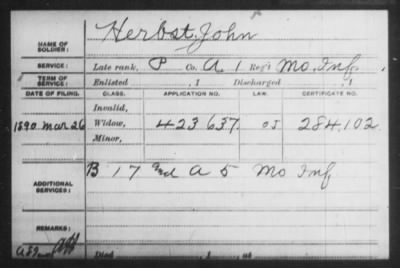 Herbst, John
NAME OF SOLDIER:
SERVICE: Late rank, P Co. A, 1 Reg't Mo. Inf.
TERM OF SERVICE: Enlisted , 1 Discharged , 1
DATE OF FILING. CLASS. APPLICATION NO. LAW. CERTIFICATE NO.
Invalid,
1890 Mar 26 Widow, 423 637. 284,102.
Minor,
B 17 and A 5 Mo Inf
ADDITIONAL SERVICES:
REMARKS:
Died , 1 at